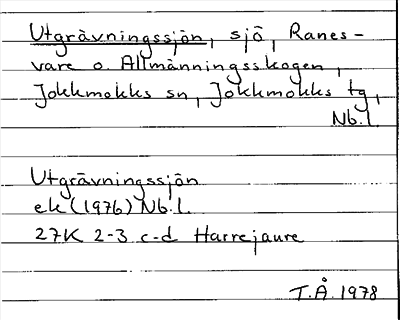 Utgrävningssjön, sjö, Ranes-
vare o. Allmänningsskogen,
Jokkmokks sn, Jokkmokks tg,
Nb.l.
Utgrävningssjön
ek (1976) Nb.l.
27K 2-3 c-d Harrejaure
T.Å. 1978